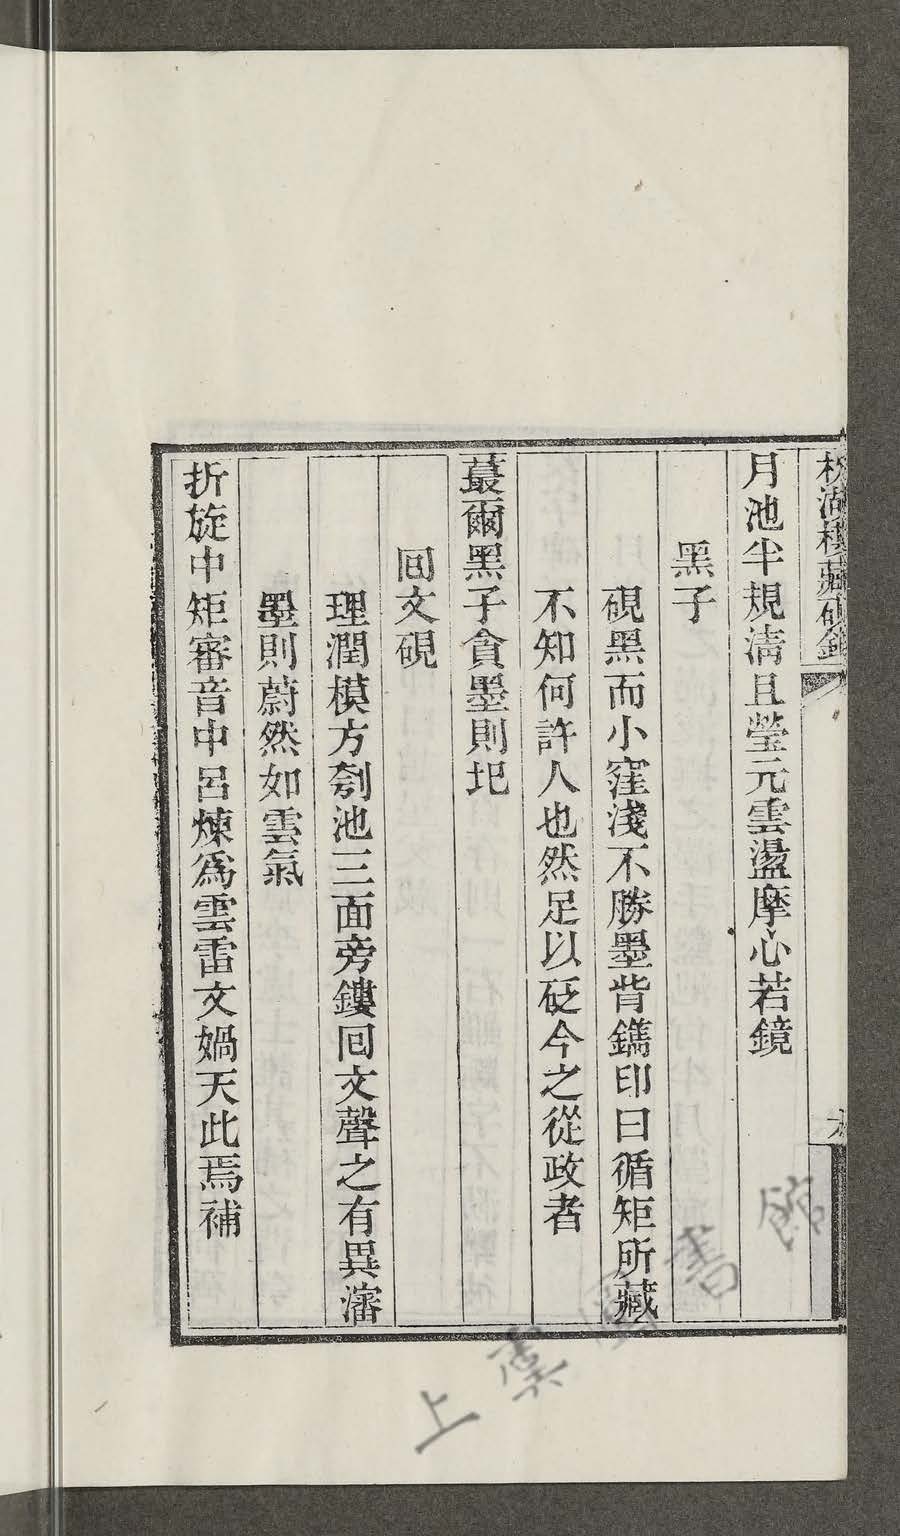 枚湖樓藏硯銘
月池半規淸且瑩元雲盪摩心若鏡
黑子
硯黑而小窪淺不勝墨背鐫印曰循矩所藏
不知何許人也然足以砭今之從政者
蕞爾黑子貪墨則圮
囘文硯
理潤模方刳池三面旁鏤囘文聲之有異瀋
墨則蔚然如雲氣
折旋中矩審音中呂煉爲雲雷文媧天此焉補
上虞圖書館